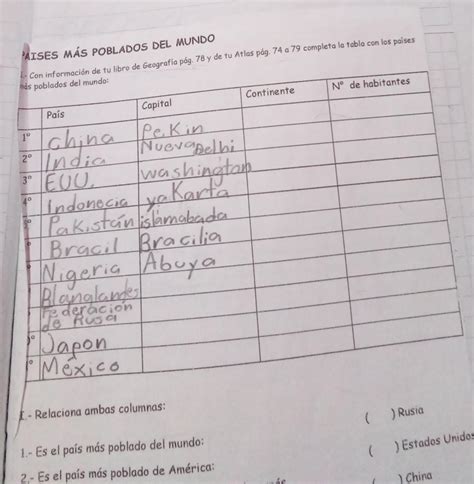 PAISES MÁS POBLADOS DEL MUNDO
1.- Con información de tu libro de Geografía pág. 78 y de tu Atlas pág. 74 a 79 completa la tabla con los países
más poblados del mundo:
País Capital Continente N° de habitantes
1° China Pe.Kin
2° India Nueva Delhi
3° EUU. washington
4° Indonecia yaKarta
5° Pakistán islamabada
Bracil Bracilia
Nigeria Abuya
Blanglandes
Federacion
de Rusa
Japon
México
- Relaciona ambas columnas:
( ) Rusia
1.- Es el país más poblado del mundo:
( ) Estados Unidos
2.- Es el país más poblado de América:
( ) China